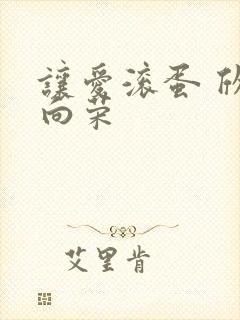 讓愛滚蛋 欣
向荣
艾里肯